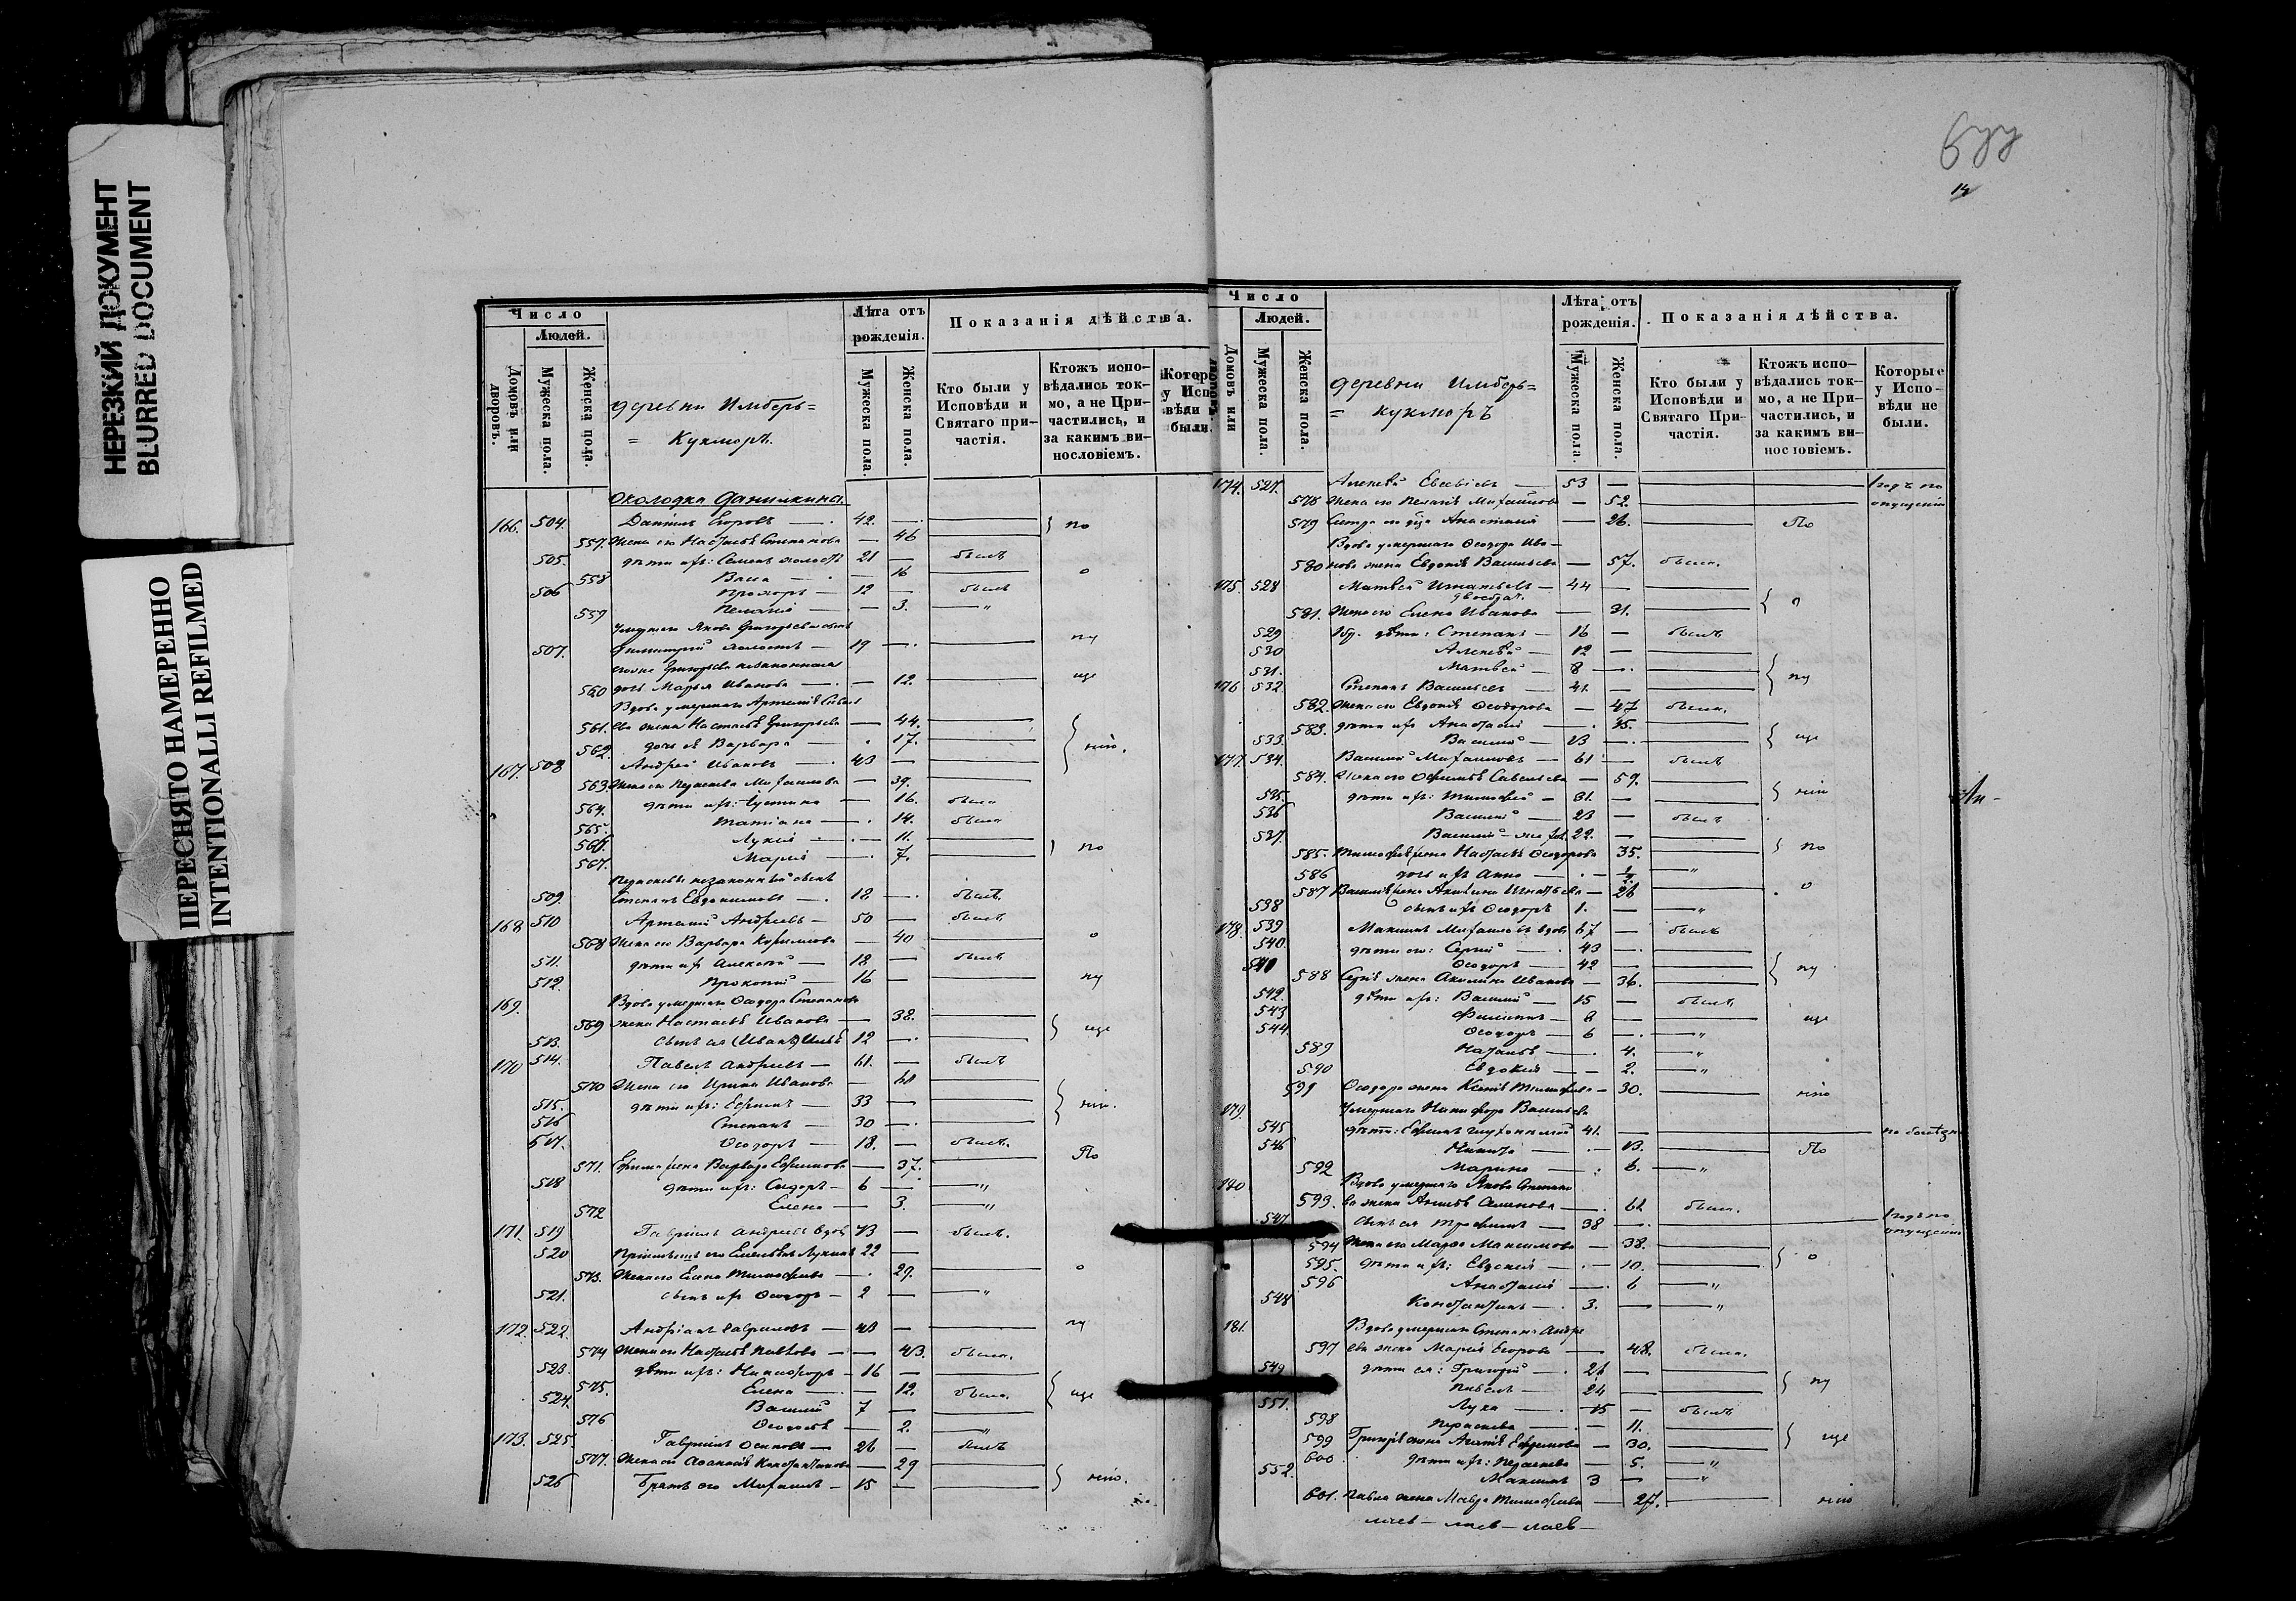 НЕРЕЗКИЙ ДОКУМЕНТ
BLURRED DOCUMENT
ПЕРЕСНЯТО НАМЕРЕННО
INTENTIONALLI REFILMED
14
Число
Людей.
Домовъ или дворовъ.
Мужеска пола.
Женска пола.
деревни Имберь=
= Кукморъ.
Лѣта отъ рожденія.
Мужеска пола.
Женска пола.
Показанія дѣйства.
Кто были у Исповѣди и Святаго причастія.
Ктожъ исповѣдались токмо, а не Причастились, и за какимъ винословіемъ.
Котор у Исп вѣди были.
Околодка Данилкина
166. 504. Даніилъ Егоровъ 42. по
557. Жена его Настасья Степанова 46
505. дѣти ихъ: Семенъ холостъ 21 былъ
558 Васса 16 о
506 Прохоръ 12 былъ
559 Пелагія 3. "
Умершаго Якова Григорьева сынъ
507. Димитрий холостъ 19 пу
Григорьева незаконная
560 дочь Марья Иванова 12. ще
Вдова умершаго Артемія
561. жена Настасья Григорьева 44.
562. дочь ея Варвара 17. нію.
167. 508 Андрей Ивановъ 43
563. Жена его Параскева Михайлова 39.
564. дѣти ихъ: Іустина 16. была
565. Татіана 14. была
566. Лукія 11. по
567. Марія 7.
Параскевы незаконный сынъ
509 Степанъ Евдокимовъ 12 былъ.
168 510 Артемій Андреевъ 50 былъ
568 Жена его Варвара 40 о
511. дѣти ихъ Алексѣй 18 былъ
512. Прокопій 16 пу
169. Вдова умершаго Ѳеодора Степанова
569 жена Настасья Иванова 38. ще
513. сынъ ея (Иванъ) 12
170 514. Павелъ Андреевъ 61. былъ
570 Жена его Ирина Иванова 61
515. дѣти ихъ: Ефимъ 33 нію.
516 Степанъ 30
517. Ѳеодоръ 18. былъ.
571. Ефима жена Варвара Ефимова 37. По
518 дѣти ихъ: Сидоръ 6 "
572 Елена 3. "
171. 519 Гавріилъ Андреевъ вдов 73 былъ.
520 его Лукинъ 22
573. Жена его Елена Тимофеева 27. о
521. сынъ ихъ Ѳеодоръ 2 "
172. 522. Андріанъ Гавриловъ 43 пу
574 Жена его Настасья Павлова 43. была.
523. дѣти ихъ: Никифоръ 16
575. Елена 12. была. ще
524. Василій 7
576 Ѳеодосія 2. "
173. 525. Гавріилъ Осиповъ 26 былъ
577. Жена его Аѳанасія Константинова 29
526 Братъ его Михаилъ 15 нію.
Число
Людей.
Домовъ или дворовъ.
Мужеска пола
Женска пола.
деревни Имберь=
= кукморъ
Лѣта отъ рожденія.
Мужеска пола.
Женска пола.
Показанія дѣйства.
Кто были у Исповѣди и Святаго Причастія.
Ктожъ исповѣдались токмо, а не Причастились, и за какимъ винословіемъ.
Которые у Исповѣди не были.
174. 527. Алексѣй Евсевіевъ 53 1 годъ по
578 Жена его Пелагія Михайлова 52. опущенію
579 Сестра Анастасія 26. По
Вдова умершаго Ѳеодора Ива-
580 нова жена Евдокія Васильева 57. была.
175. 528 Матвей Игнатьевъ 44
581. Жена его Елена Иванова 31. о
529 дѣти: Степанъ 16 былъ
530 Алексѣй 12
531. Матвей 8 пу
176 532. Степанъ Васильевъ 41.
582. Жена его Евдокія Ѳеодорова 47 была.
583. дѣти ихъ Анастасія 15. ще
533. Василій 13
177. 534. Василій Михайловъ 61 былъ
584. Жена его Савельева 59. нію
535. дѣти ихъ: Тимофей 31.
536 Василій 23 былъ
537. Василій 22. по
585. Тимофея жена Настасья Ѳеодорова 35.
586 дочь ихъ Анна 1/2. "
587 Василія жена Акилина Игнатьева 26 о
538 сынъ ихъ Ѳеодоръ 1. "
178. 539 Максимъ Михайловъ вдов 67 былъ
540. дѣти его: Сергій 43
541 Ѳеодоръ 42 пу
588 Сергія жена Акилина Иванова 36.
542. дѣти ихъ: Василій 15 былъ
543 Филиппъ 8 ще
544. Ѳеодоръ 6 "
589 Наталья 4. "
590 Евдокія 2. "
599 Ѳеодора жена Ксенія Тимофеева 30. нію
179. Умершаго Никифора Васильева
545 дѣти: Ефимъ 41. по болѣзни
546 Никита 13. По
592 Марина 6. "
180. Вдова умершаго Якова Степано
593. ва жена Анисья Семенова 61 была.
547 сынъ ея Трофимъ 38 1 годъ по
594 Жена его Марѳа Максимова 38. опущенію
595. дѣти ихъ: Евдокія 10. о
596 Анастасія 6 "
548 Константинъ 3. "
181. Вдова умершаго Степана Андре
597 ева жена Марія Егорова 48. была.
549 дѣти ея: Григорій 26
Павелъ 24 пу
551. Лука 15 былъ
598 Параскева 11.
599 Григорія жена Агаѳія Ефремова 30. ще
600 дѣти ихъ: Параскева 5. "
552. Максимъ 3 "
601. Павла жена Мавра Тимофеева 27. нію